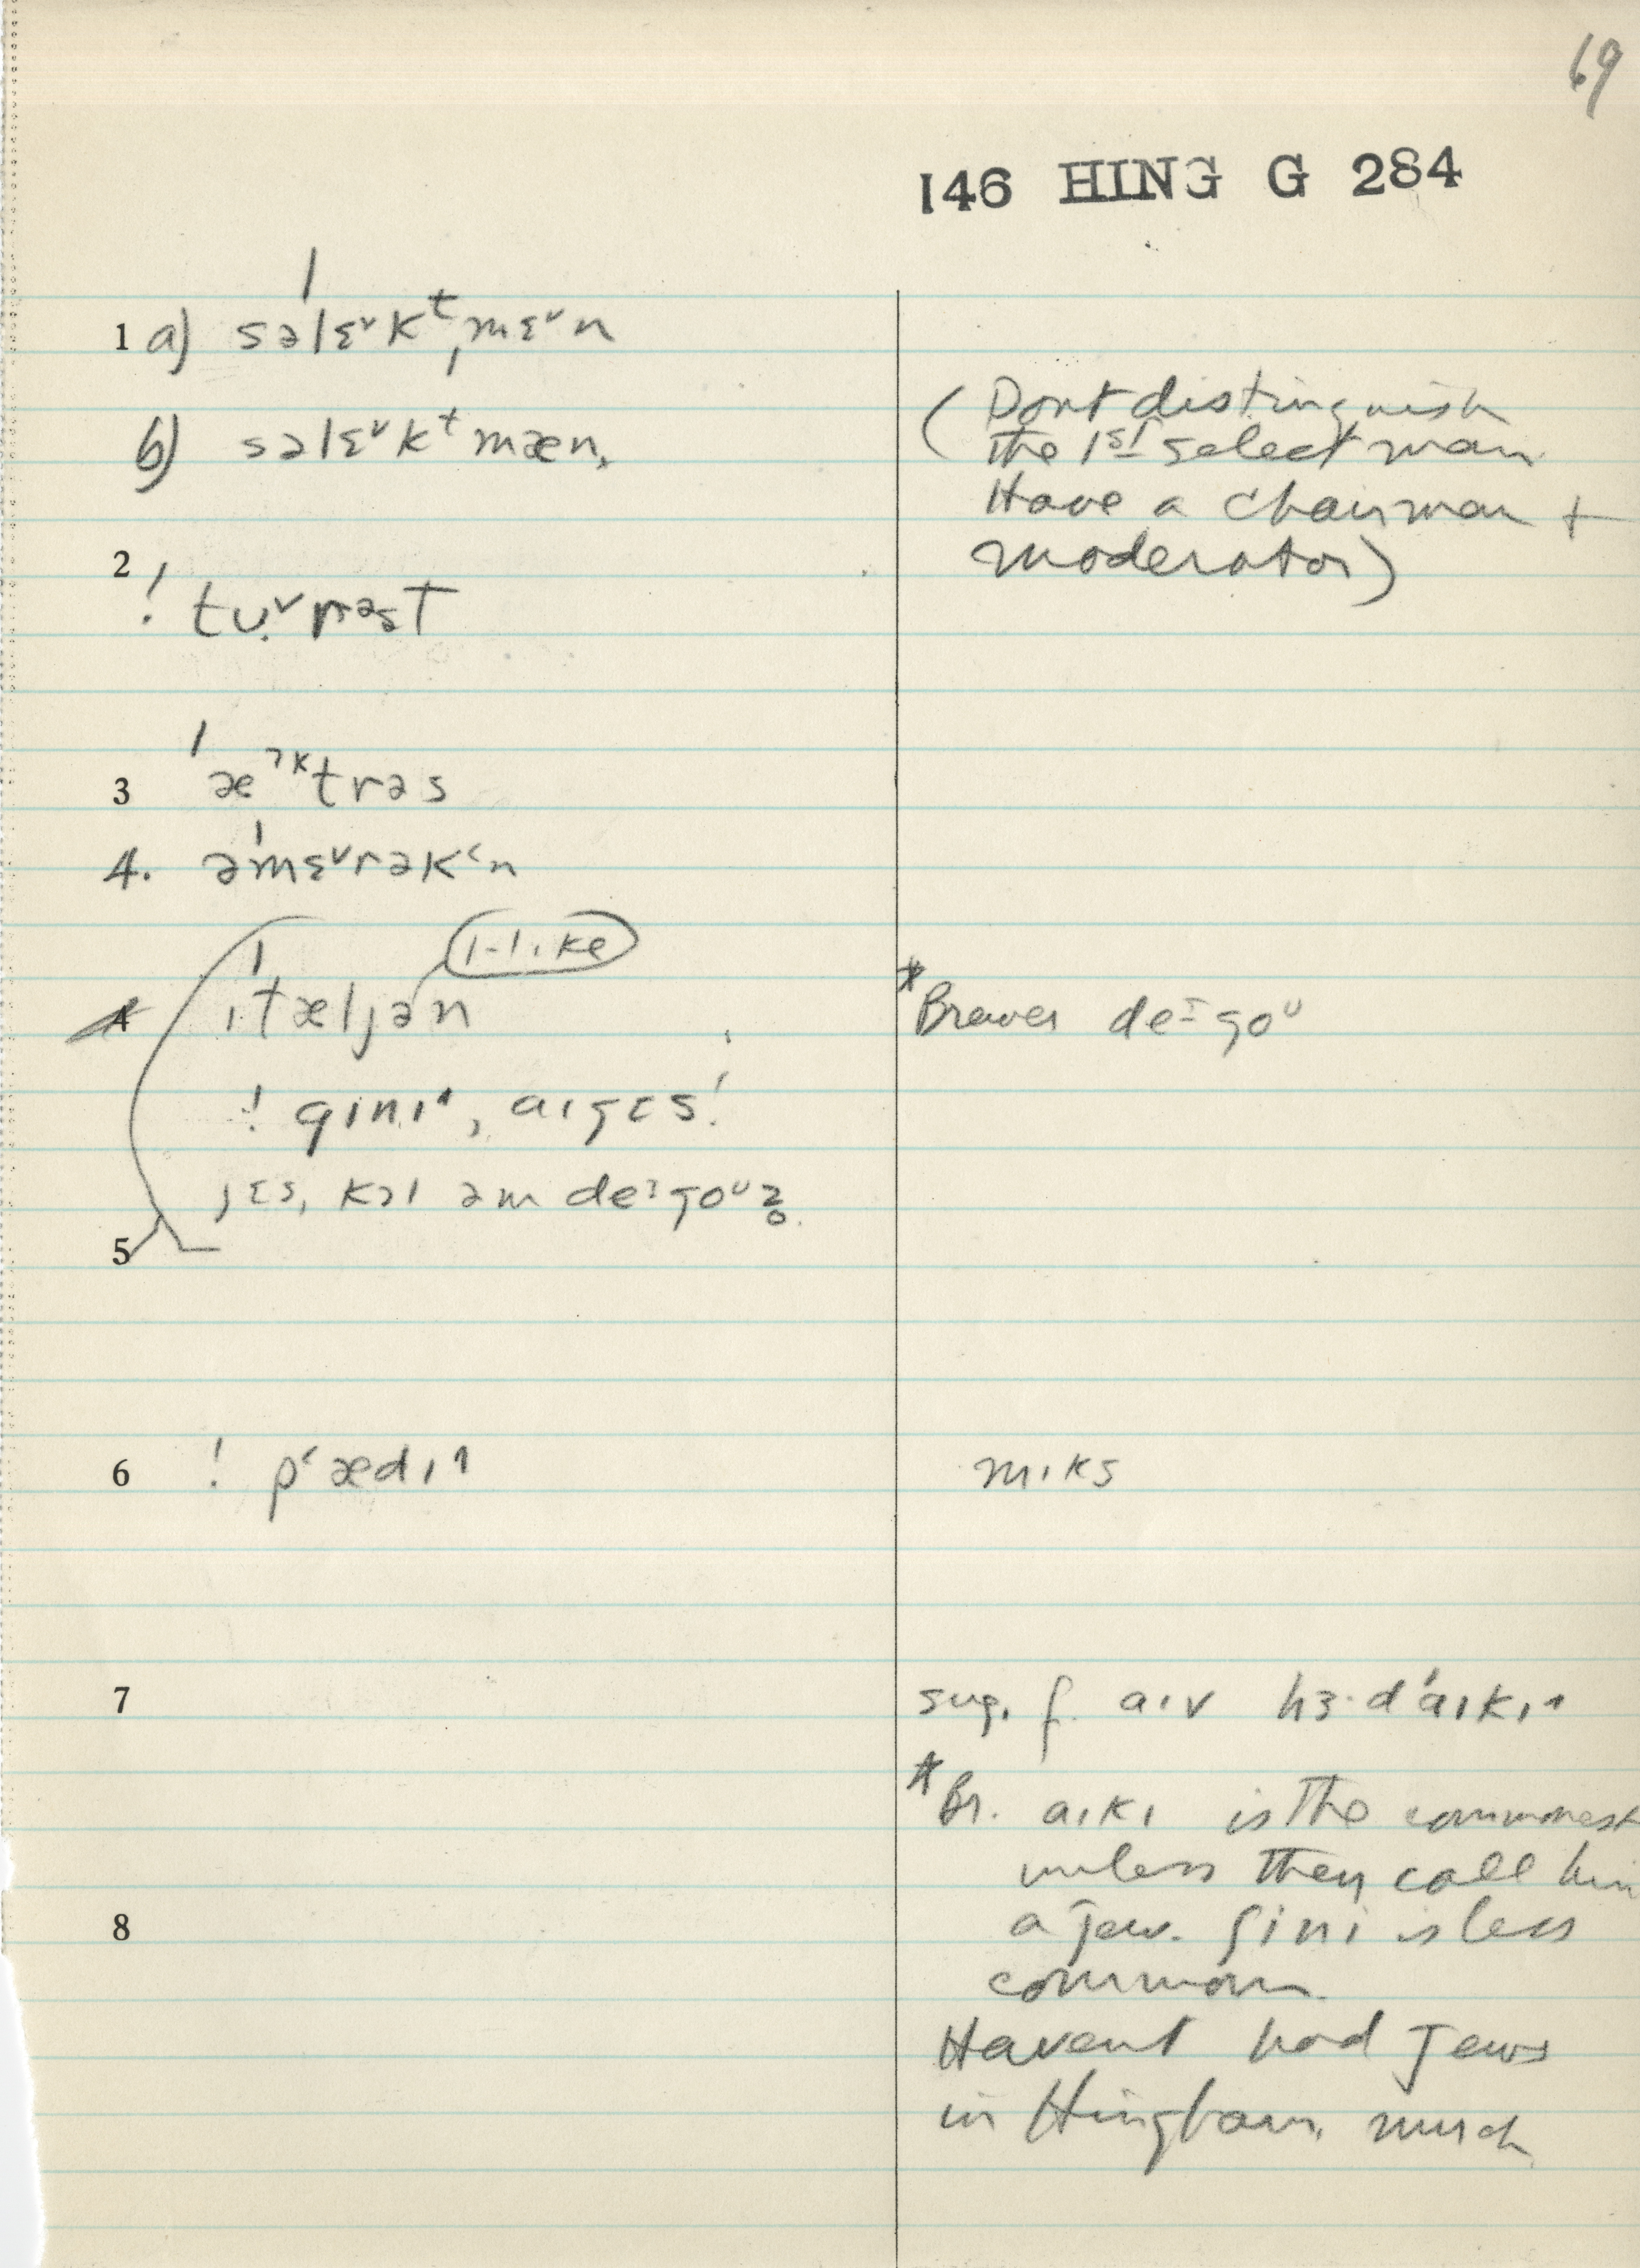 69
146 HING G 284
1 a) səlɛ˅kᵗˌmɛ˅n
b) səlɛ˅kᵗmæn,
(Dont distinguish
the 1st select man
Have a chairman +
moderator)
2
! tʊ˅rəst
3 æˀᵏtrəs
4. əmɛ˅rəkʻn
ɪ-like
4 ɪtæljən
* Brewer deɪgoᵁ
! gɪnɪ˄, aɪgɛs!
jɛs, kɔl əm deɪgoᵁz̥.
5
6 ! pʻædɪ˄
mɪks
7
sug. f. aɪv hɜ·d aɪkɪ˄
* Br. aɪkɪ is the commonest
unless they call him
a Jew. ʃinɪ is less
8
common
Havent had Jews
in Hingham much